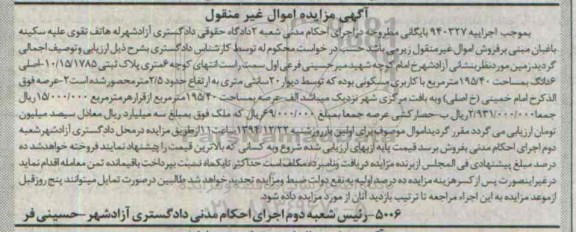 آگهی مزایده اموال غیر منقول
بموجب اجراییه ۹۴۰۳۲۷ بایگانی مطروحه در اجرای احکام مدنی شعبه ۲ دادگاه حقوقی دادگستری آزادشهر له هاتف تقوی علیه سکینه
باغبان مبنی بر فروش اموال غیر منقول زیر می باشد حسب درخواست محکوم له توسط کارشناس دادگستری بشرح ذیل ارزیابی و توصیف اجمالی
گردید زمین مورد نظر بنشانی آزادشهر خ امام کوچه شهید میرحسینی فرعی اول سمت راست انتهای کوچه ۶ متری پلاک ثبتی ۱۰/۱۵/۱۷۸۵-اصلی
۶ دانگ بمساحت ۱۹۵/۴۰ مترمربع با کاربری مسکونی بوده که توسط دیوار ۲۰ سانتی متری به ارتفاع حدود ۲/۵ متر محصور شده است ۲-عرصه فوق
الذکر خ امام خمینی (خ اصلی) و به بافت مرکزی شهر نزدیک میباشد الف عرصه بمساحت ۱۹۵/۴۰ مترمربع از قرار هر مترمربع ۱۵/۰۰۰/۰۰۰ ریال
جمعا ۲/۹۳۱/۰۰۰/۰۰۰ ریال ب-حصارکشی عرصه جمعا بمبلغ ۶۹/۰۰۰/۰۰۰ ریال که ملک فوق بمبلغ سه میلیارد ریال معادل سیصد میلیون
تومان ارزیابی می گردد مقرر گردید اموال موصوف برای اولین بار روز شنبه ۱۳۹۴/۱۲/۲۲ ساعت ۱۱ از طریق مزایده در محل دادگستری آزادشهر شعبه
دوم اجرای احکام مدنی بفروش برسد قیمت پایه از بهای ارزیابی شده شروع و به کسانی که بالاترین قیمت را پیشنهاد نمایند فروخته خواهد شد ده
درصد مبلغ پیشنهادی فی المجلس از برنده مزایده دریافت و نامبرده مکلف است حداکثر تا یکماه نسبت پرداخت باقیمانده ثمن معامله اقدام نماید
در غیر اینصورت پس از کسر هزینه مزایده ده درصد اولیه به نفع دولت ضبط و مزایده تجدید خواهد شد طالبین در صورت تمایل میتوانند پنج روز قبل
از موعد مزایده به این اجراء مراجعه تا ترتیب بازدید آنان از مورد مزایده داده شود.
۵۰۰۶-رئیس شعبه دوم اجرای احکام مدنی دادگستری آزادشهر -حسینی فر